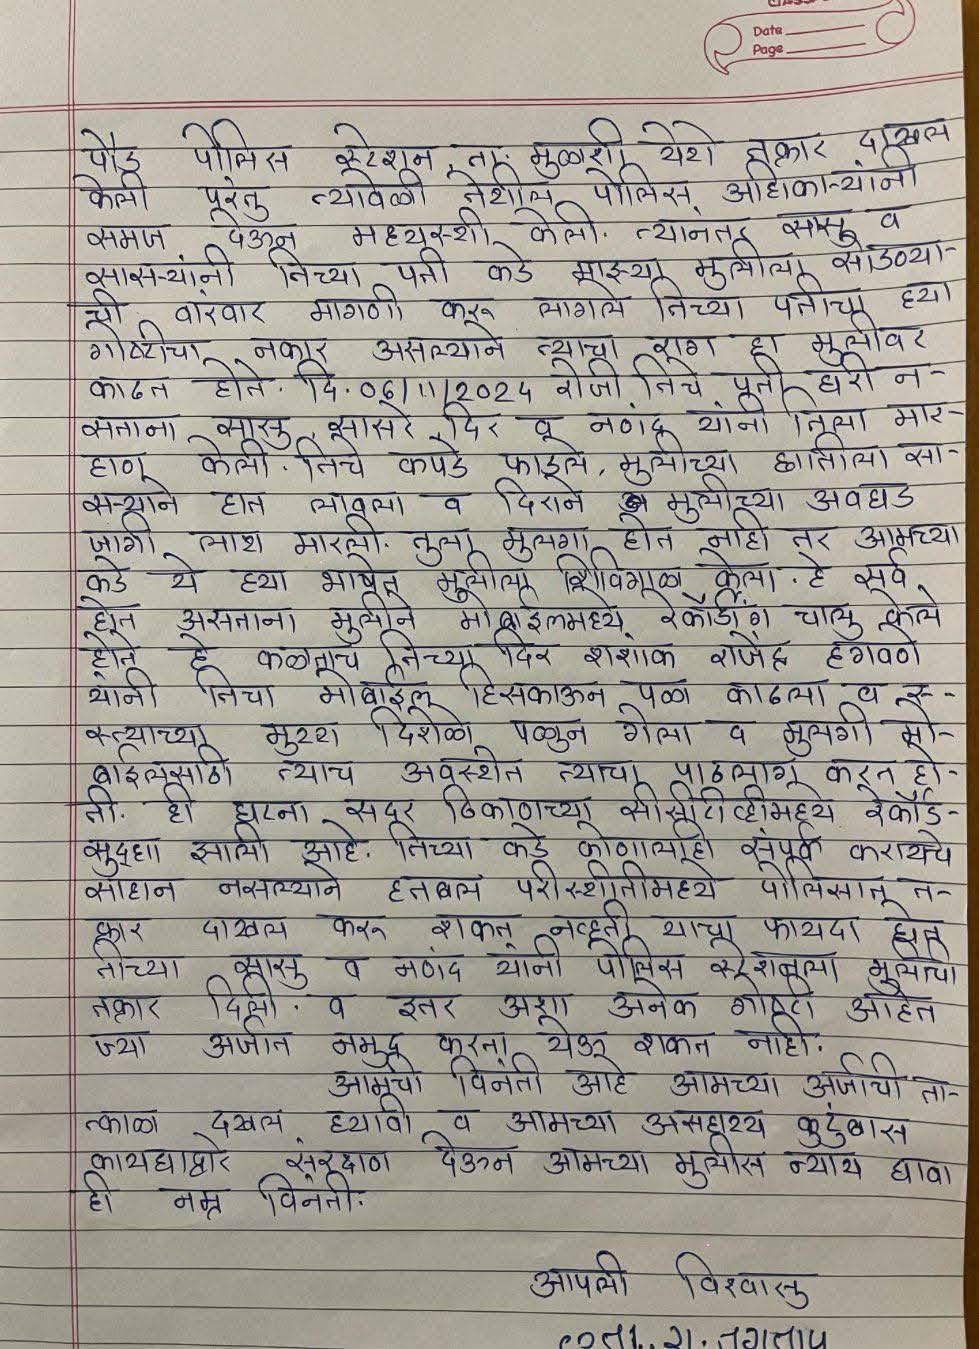 Date
Page
पौड पोलिस स्टेशन, ता. मुळाशी येथे तक्रार दाखल
केली परंतु त्यावेळी तेथील पोलिस अधिकाऱ्यांनी
समज देऊन मध्यस्थी केली. त्यानंतर सासु व
सासऱ्यांनी तिच्या पती कडे माझ्या मुलीला सोडण्या-
ची वारंवार मागणी करू लागले तिच्या पतीचा ह्या
गोष्टीचा नकार असल्याने त्याचा राग हा मुलीवर
काढत होते. दि. 06/11/2024 रोजी तिचे पती घरी न-
सताना सासु, सासरे, दिर व नणंद यांनी तिला मार-
हाण केली. तिचे कपडे फाडले, मुलीच्या छातीला सा-
सऱ्याने हात लावला व दिराने मुलीच्या अवघड
जागी लाथ मारली. तुला मुलगा होत नाही तर आमच्या
कडे ये ह्या भाषेत मुलीला शिविगाळ केला. हे सर्व
होत असताना मुलीने मोबाईलमध्ये रेकॉर्डींग चालु केले
होते हे कळताच तिच्या दिर शशांक राजेंद्र हगवणे
यांनी तिचा मोबाईल हिसकाऊन पळ काढला व र-
स्त्याच्या दिशेने पळुन गेला व मुलगी मो-
बाईलसाठी त्याच अवस्थेत त्याचा पाठलाग करत हो-
ती. ही घटना सदर ठिकाणच्या सीसीटीव्हीमध्ये रेकॉर्ड-
सुद्धा झाली आहे. तिच्या कडे कोणालाही संपर्क करायचे
साधन नसल्याने हतबल परीस्थीतीमध्ये पोलिसात त-
क्रार दाखल करू शकत नव्हती याचा फायदा घेत
तीच्या सासु व नणंद यांनी पोलिस स्टेशनला मुलीची
तक्रार दिली. व इतर अशा अनेक गोष्टी आहेत
ज्या अर्जात नमुद करता येऊ शकत नाही.
आमची विनंती आहे आमच्या अर्जाची ता-
त्काळ दखल घ्यावी व आमच्या असहाय्य कुटुंबास
कायद्याद्वारे संरक्षण देऊन आमच्या मुलीस न्याय द्यावा
ही नम्र विनंती.
आपली विश्वासु